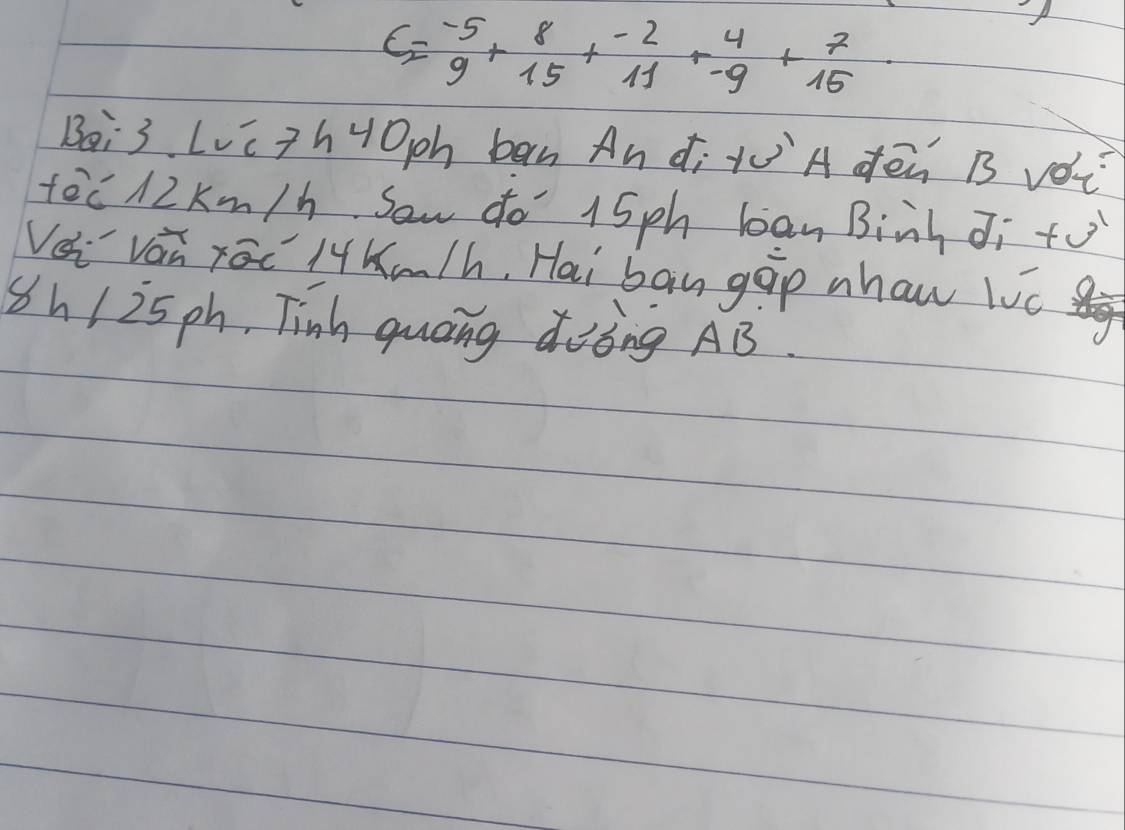 C = -5/9 + 8/15 + -2/11 + 4/-9 + 7/15.
Bài 3. Lúc 7h40ph bạn An đi từ A đến B với
tốc 12 Km/h. Sau đó 15ph bạn Bình đi từ
Với vận tốc 14 Km/h. Hai bạn gặp nhau lúc
8h 25ph. Tính quãng đường AB.